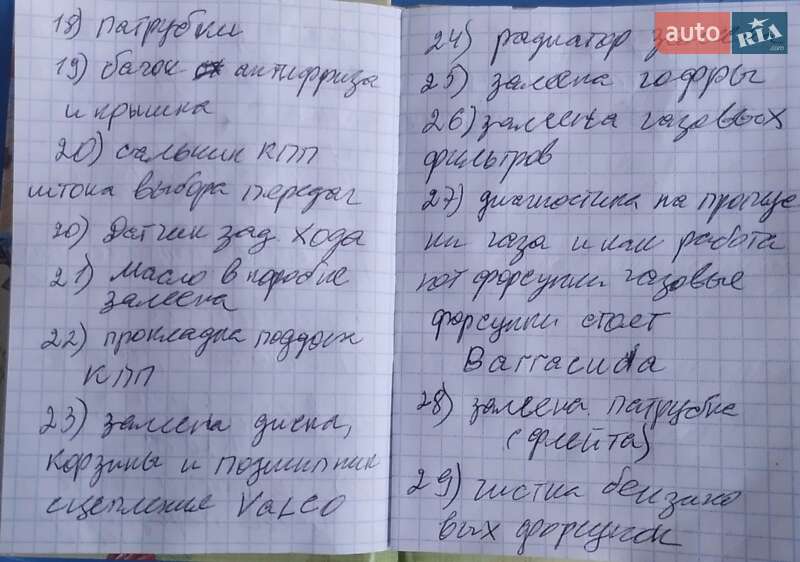 18) патрубки
19) бачок антифриза
и крышка
20) сальник КПП
штока выбора передач
20) Датчик зад хода
21) Масло в коробке
замена
22) прокладка поддон
КПП
23) замена диска,
корзины и подшипник
сцепление Valeo
24) радиатор
25) замена гофры
26) замена газовых
фильтров
27) диагностика на пропуске
ни газа и как работа
ют форсунки газовые
форсунки стоет
Barracuda
28) замена патрубке
(флейта)
29) чистка бензино
вых форсунок
auto RIA.com